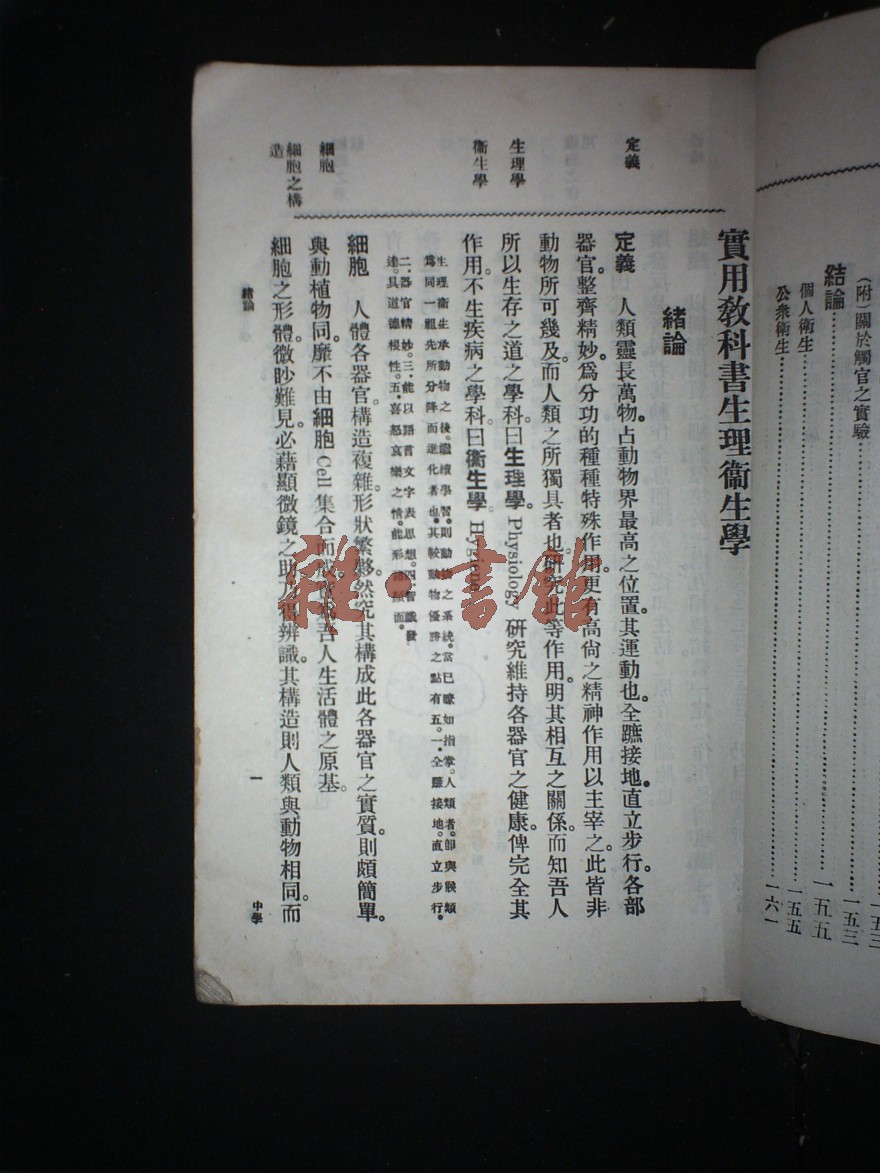 (附)關於觸官之實驗………一五三
結論………一五五
個人衞生………一五五
公衆衞生………一六一
實用敎科書生理衞生學
緒論
定義
定義　人類靈長萬物。占動物界最高之位置。其運動也。全蹠接地。直立步行。各部
器官。整齊精妙。爲分功的種種特殊作用。更有高尙之精神作用以主宰之。此皆非
動物所可幾及。而人類之所獨具者也。硏究此等作用。明其相互之關係。而知吾人
生理學
所以生存之道之學科。曰生理學。Physiology 硏究維持各器官之健康。俾完全其
衞生學
作用。不生疾病之學科。曰衞生學。Hygiene
生理衞生承動物之後。繼續學習。則動物之系統。當已瞭如指掌。人類者。卽與猴類
爲同一祖先所分降而進化者也。其較動物優勝之點有五。一、全蹠接地。直立步行。
二、器官精妙。三、能以語言文字表思想。四、智識發
達。具道德根性。五、喜怒哀樂之情。能形諸顏面。
細胞
細胞　人體各器官。構造複雜。形狀繁夥。然究其構成此各器官之實質。則頗簡單。
與動植物同。靡不由細胞 Cell 集合而成。
吾人生活體之原基。
細胞之構造
細胞之形體。微眇難見。必藉顯微鏡之助。乃得辨識。其構造則人類與動物相同。而
緒論
一
中學
雜·書館